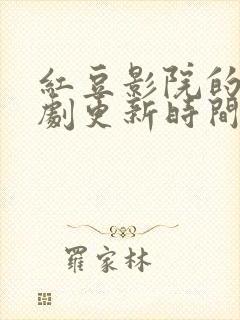 紅豆影院的
劇更新時間
羅家林